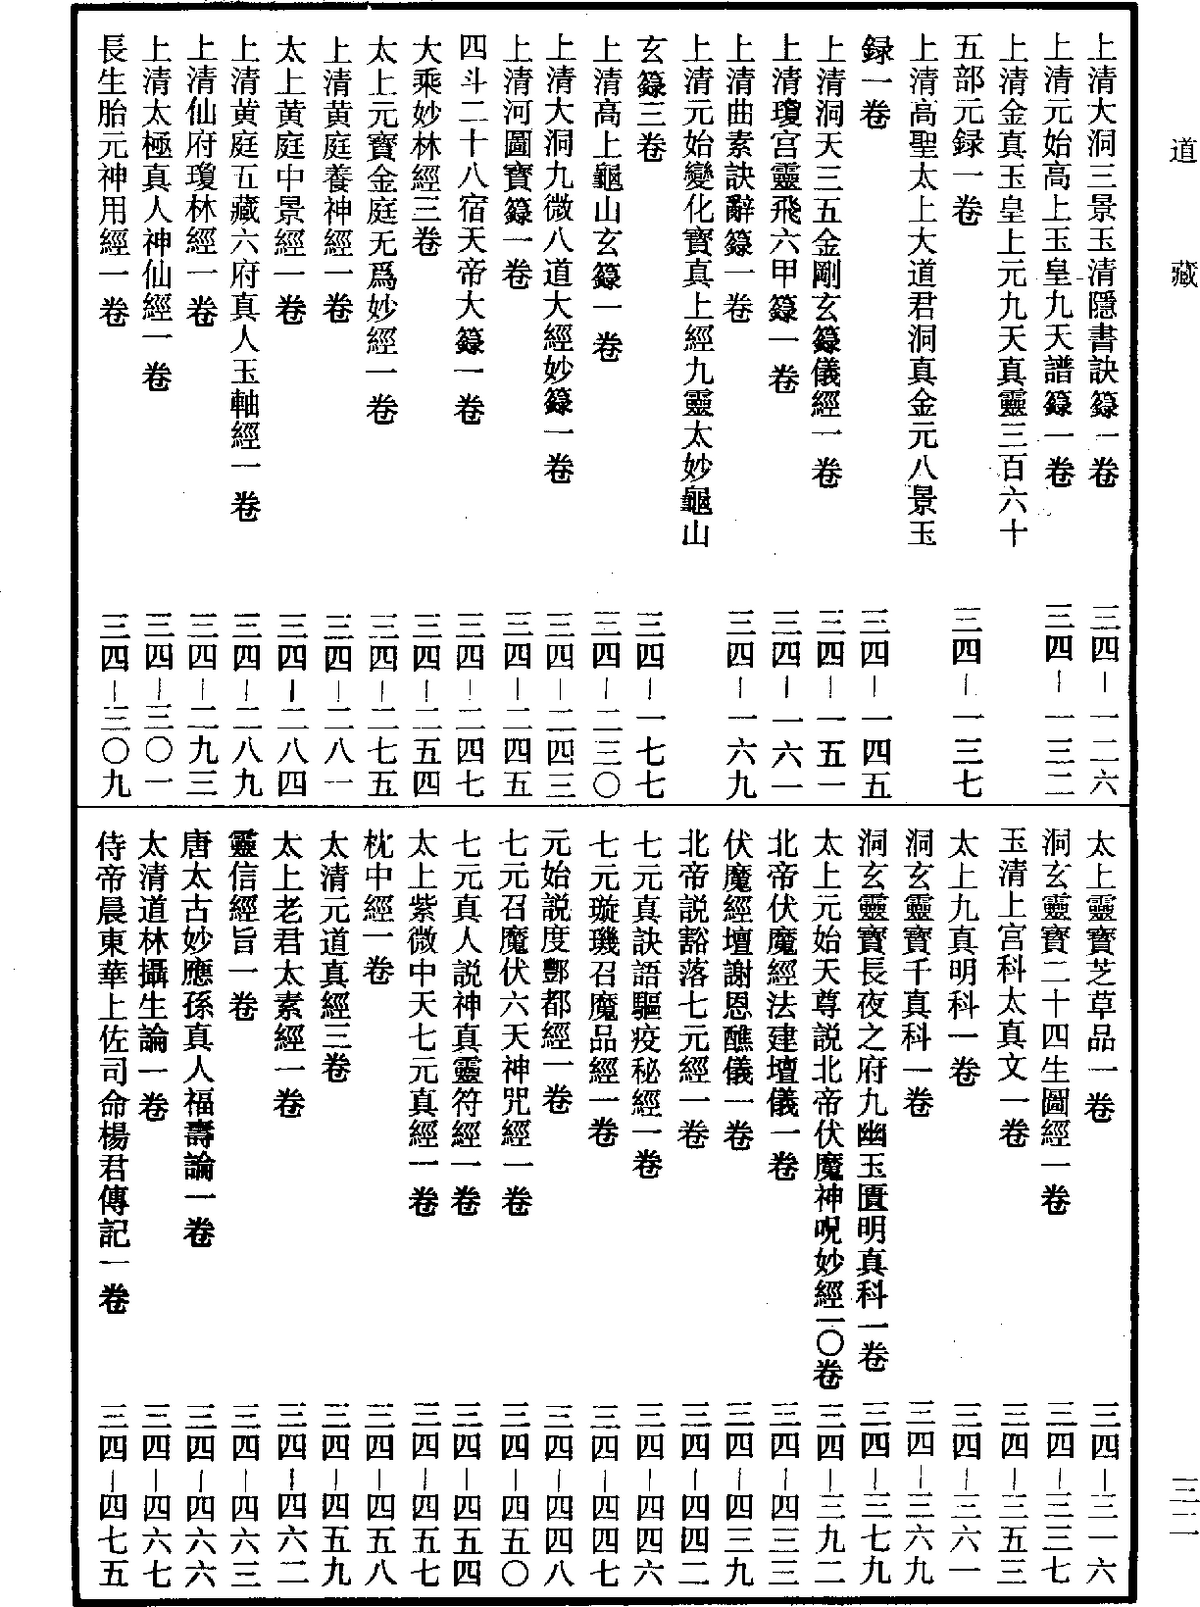 道藏
上清大洞三景玉清隱書訣籙一卷 三四－一二六
上清元始高上玉皇九天譜籙一卷 三四－一三二
上清金真玉皇上元九天真靈三百六十
五部元録一卷 三四－一三七
上清高聖太上大道君洞真金元八景玉
録一卷 三四－一四五
上清洞天三五金剛玄籙儀經一卷 三四－一五一
上清瓊宫靈飛六甲籙一卷 三四－一六一
上清曲素訣辭籙一卷 三四－一六九
上清元始變化寶真上經九靈太妙龜山
玄籙三卷 三四－一七七
上清高上龜山玄籙一卷 三四－二三〇
上清大洞九微八道大經妙籙一卷 三四－二四三
上清河圖寶籙一卷 三四－二四五
四斗二十八宿天帝大籙一卷 三四－二四七
大乘妙林經三卷 三四－二五四
太上元寶金庭无爲妙經一卷 三四－二七五
上清黄庭養神經一卷 三四－二八一
太上黄庭中景經一卷 三四－二八四
上清黄庭五藏六府真人玉軸經一卷 三四－二八九
上清仙府瓊林經一卷 三四－二九三
上清太極真人神仙經一卷 三四－三〇一
長生胎元神用經一卷 三四－三〇九
太上靈寶芝草品一卷 三四－三一六
洞玄靈寶二十四生圖經一卷 三四－三三七
玉清上宫科太真文一卷 三四－三五三
太上九真明科一卷 三四－三六一
洞玄靈寶千真科一卷 三四－三六九
洞玄靈寶長夜之府九幽玉匱明真科一卷 三四－三七九
太上元始天尊説北帝伏魔神呪妙經一〇卷 三四－三九二
北帝伏魔經法建壇儀一卷 三四－四三三
伏魔經壇謝恩醮儀一卷 三四－四三九
北帝説豁落七元經一卷 三四－四四二
七元真訣語驅疫秘經一卷 三四－四四六
七元璇璣召魔品經一卷 三四－四四七
元始説度酆都經一卷 三四－四四八
七元召魔伏六天神咒經一卷 三四－四五〇
七元真人説神真靈符經一卷 三四－四五四
太上紫微中天七元真經一卷 三四－四五七
枕中經一卷 三四－四五八
太清元道真經三卷 三四－四五九
太上老君太素經一卷 三四－四六二
靈信經旨一卷 三四－四六三
唐太古妙應孫真人福壽論一卷 三四－四六六
太清道林攝生論一卷 三四－四六七
侍帝晨東華上佐司命楊君傳記一卷 三四－四七五
三二